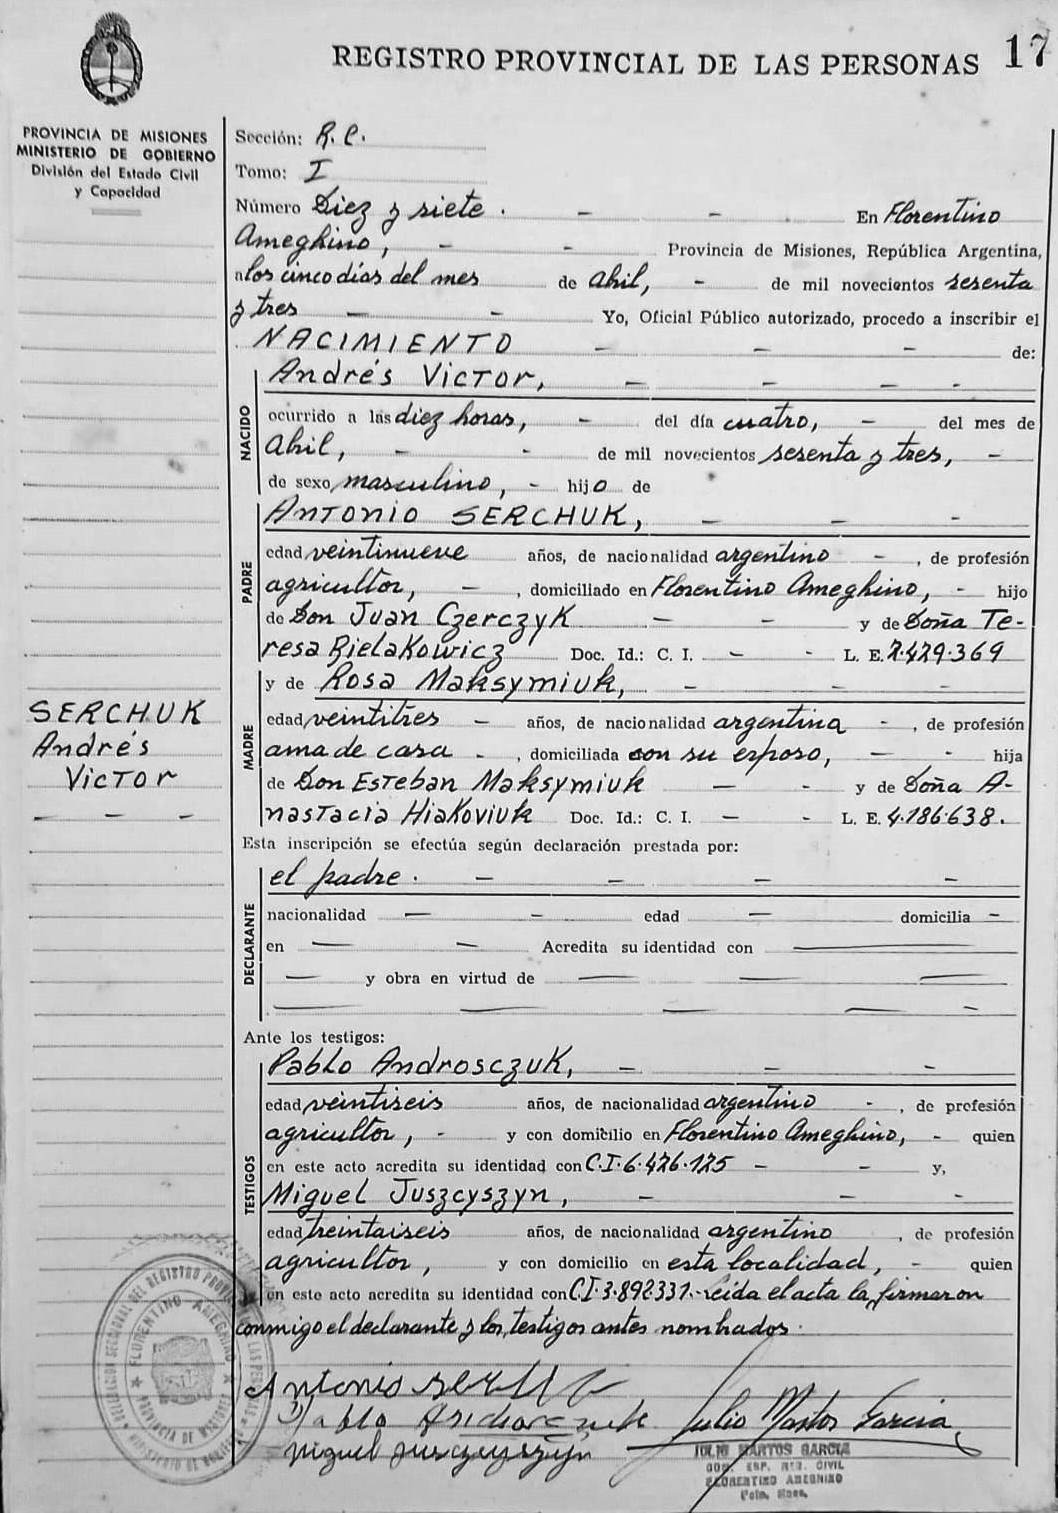 REGISTRO PROVINCIAL DE LAS PERSONAS 17
PROVINCIA DE MISIONES
MINISTERIO DE GOBIERNO
División del Estado Civil
y Capacidad
SERCHUK
Andrés
Victor
Sección: R. C.
Tomo: I
Número Diez y siete. - - En Florentino
Ameghino, - - Provincia de Misiones, República Argentina,
a los cinco días del mes de Abril, - de mil novecientos sesenta
y tres - - Yo, Oficial Público autorizado, procedo a inscribir el
NACIMIENTO - - - de:
NACIDO
Andrés Victor, - - - -
ocurrido a las diez horas, - del día cuatro, - del mes de
Abril, - - de mil novecientos sesenta y tres, -
de sexo masculino, - hijo de
PADRE
Antonio SERCHUK, - - -
edad veintinueve años, de nacionalidad argentino - , de profesión
agricultor, - , domiciliado en Florentino Ameghino, - hijo
de Don Juan Czerczyk - - y de Doña Te-
resa Bielakowicz Doc. Id.: C. I. - - L. E. 7.479.369
MADRE
y de Rosa Maksymiuk, - - -
edad veintitres - años, de nacionalidad argentina - , de profesión
ama de casa - , domiciliada con su esposo, - - hija
de Don Esteban Maksymiuk - - y de Doña A-
nastacia Hiakoviuk Doc. Id.: C. I. - - L. E. 4.186.638.
Esta inscripción se efectúa según declaración prestada por:
DECLARANTE
el padre. - - - -
nacionalidad - - edad - domicilia -
en - - Acredita su identidad con -
- y obra en virtud de - - -
Ante los testigos:
TESTIGOS
Pablo Androsczuk, - - -
edad veintiseis años, de nacionalidad argentino - , de profesión
agricultor, - y con domicilio en Florentino Ameghino, - quien
en este acto acredita su identidad con C.I. 6.476.125 - - y,
Miguel Juszcyszyn, - - -
edad treintaiseis años, de nacionalidad argentino , de profesión
agricultor, y con domicilio en esta localidad, - quien
en este acto acredita su identidad con C.I. 3.892.331.- Leída el acta la firmaron
conmigo el declarante y los testigos antes nombrados.
Antonio
Pablo
Miguel
Julio Martos Garcia
JULIO MARTOS GARCIA
REG. CIVIL
FLORENTINO AMEGHINO
FLORENTINO AMEGHINO
PROVINCIA DE MISIONES